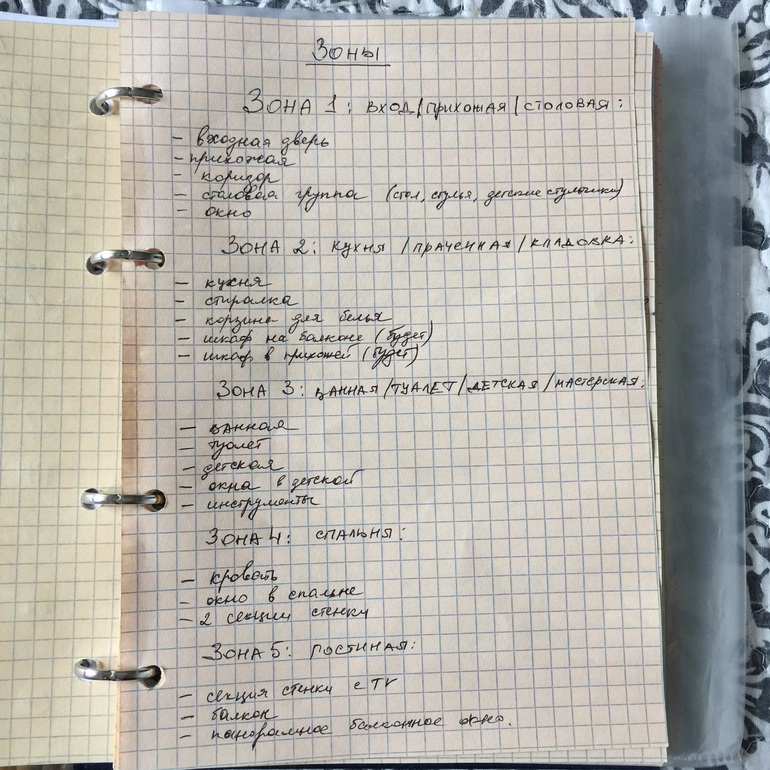 Зоны
Зона 1: вход/прихожая/столовая:
- входная дверь
- прихожая
- коридор
- столовая группа (стол, стулья, детские стульчики)
- окно
Зона 2: кухня /праченная/кладовка:
- кухня
- стиралка
- корзина для белья
- шкаф на балконе (будет)
- шкаф в прихожей (будет)
Зона 3: ванная/туалет/детская/мастерская:
- ванная
- туалет
- детская
- окна в детской
- инструменты
Зона 4: спальня:
- кровать
- окно в спальне
- 2 секции стенки
Зона 5: гостиная:
- секция стенки с TV
- балкон
- панорамное балконное окно.